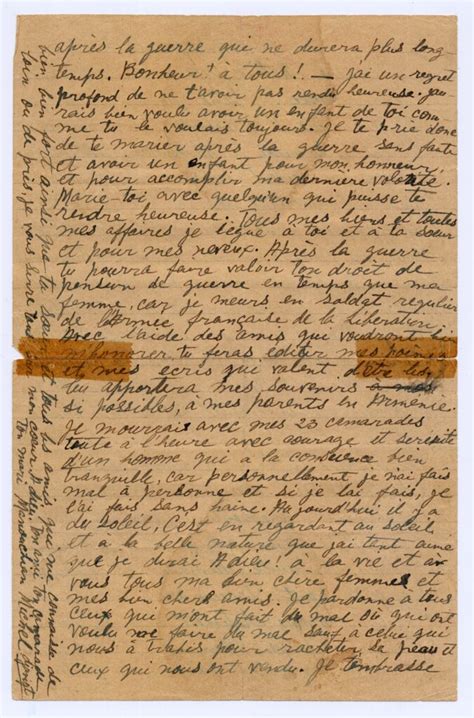 après la guerre qui ne durera plus long-
temps. Bonheur! à tous! — j'ai un regret
profond de ne t'avoir pas rendu heureuse. j'au
rais bien voulu avoir un enfant de toi com
me tu le voulais toujours. Je te prie donc
de te marier après la guerre sans faute
et avoir un enfant pour mon honneur
et pour accomplir ma dernière volonté.
Marie-toi avec quelqu'un qui puisse te
rendre heureuse. Tous mes biens et toutes
mes affaires je lègue à toi et à ta sœur
et pour mes neveux. Après la guerre
tu pourra faire valoir ton droit de
pension de guerre en temps que ma
femme, car je meurs en soldat regulier
de l'Armee française de la Liberation.
Avec l'aide des amis qui voudront bien
m'honorer tu feras editer mes poèmes
et mes ecris qui valent d'être lus
tu apportera mes souvenirs
si possibles, à mes parents en Armenie.
Je mourrais avec mes 23 camarades
toute à l'heure avec courage et serenité
d'un homme qui a la conscience bien
tranquille, car personnellement je n'ai fais
mal à personne et si je l'ai fais, je
l'ai fais sans haine. Aujourd'hui il y a
du soleil, C'est en regardant au soleil
et à la belle nature que j'ai tant aimé
que je dirai Adieu! à la vie et à
vous tous ma bien chère femme et
mes bien chers amis. Je pardonne à tous
ceux qui m'ont fait du mal ou qui ont
voulu me faire du mal sauf à celui qui
nous à trahis pour racheter sa peau et
ceux qui nous ont vendu. Je t'embrasse
bien bien fort ainsi que ta sœur et tous les amis que me connaisse de
loin ou de près je vous serre tous sur mon cœur. Adieu. Ton ami Ton camarade
Ton mari Manouchian Michel